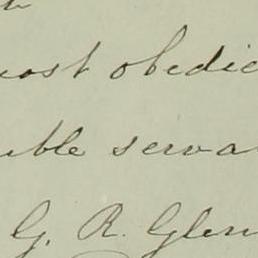 most obedie
mble serva
G. R. Glen